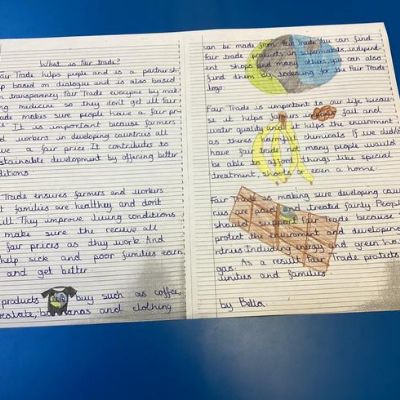 What is Fair trade?
Fair Trade helps people and is a partnersh-
ip based on dialogue and is also based
transparency. Fair Trade everyone by mak-
ing medicine so they don't get ill Fair
rade makes sure people have a fair pri-
It is important because farmers
nd workers in developing countries all
ve a fair price It contributes to
ustainable development by offering better
ditions
Trade ensures farmers and workers
families are healthey and don't
ll They improve living conditions
make sure the recieve all
fair prices as they work. And
help sick and poor families earn
and get better
products buy such as coffee,
colate, bananas and clothing
can be made from Fair Trade You can find
Fair trade products in supermarkets, independ-
ent shops and many others, you can also
find them by looking for the Fair Trade
logo.
Fair Trade is important to our life becau-
se it helps farmers soil and
water quality and it helps the environment
as theres harmful chemicals If we didn't
have fair trade many people would
be able to afford things like special
treatment shoots even a home.
Fair Trade is making sure developing coun
ries are treated fairly People
should support Fair trade because
protect the environment and developing
ntries Including energy and green hou
gas. As a result Fair Trade protects
unities and families
by Bella